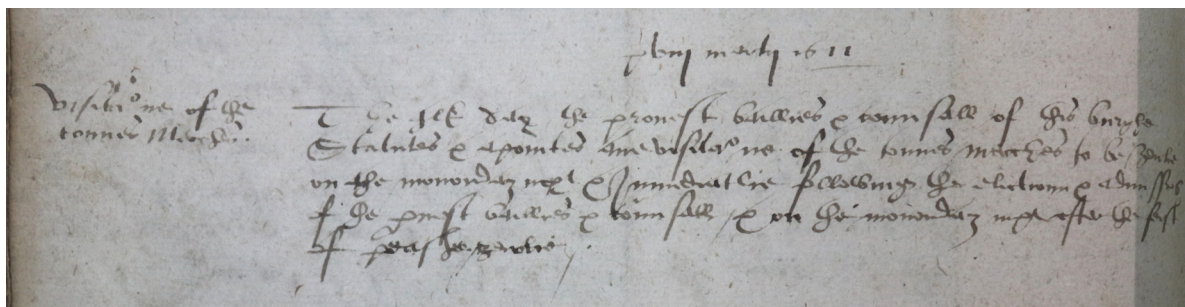 xviij Martij 1611
Visitatione of the
tounes Merches
The qlk day the provest baillies & counsall of this burghe
Statutes & apointes ane visitatione of the tounes merches to be
on the monónday nixt & Immediatlie following the electioun &
of the provest baillies & counsall & on the monónday nixt efter the fest
of peashe zeirlie